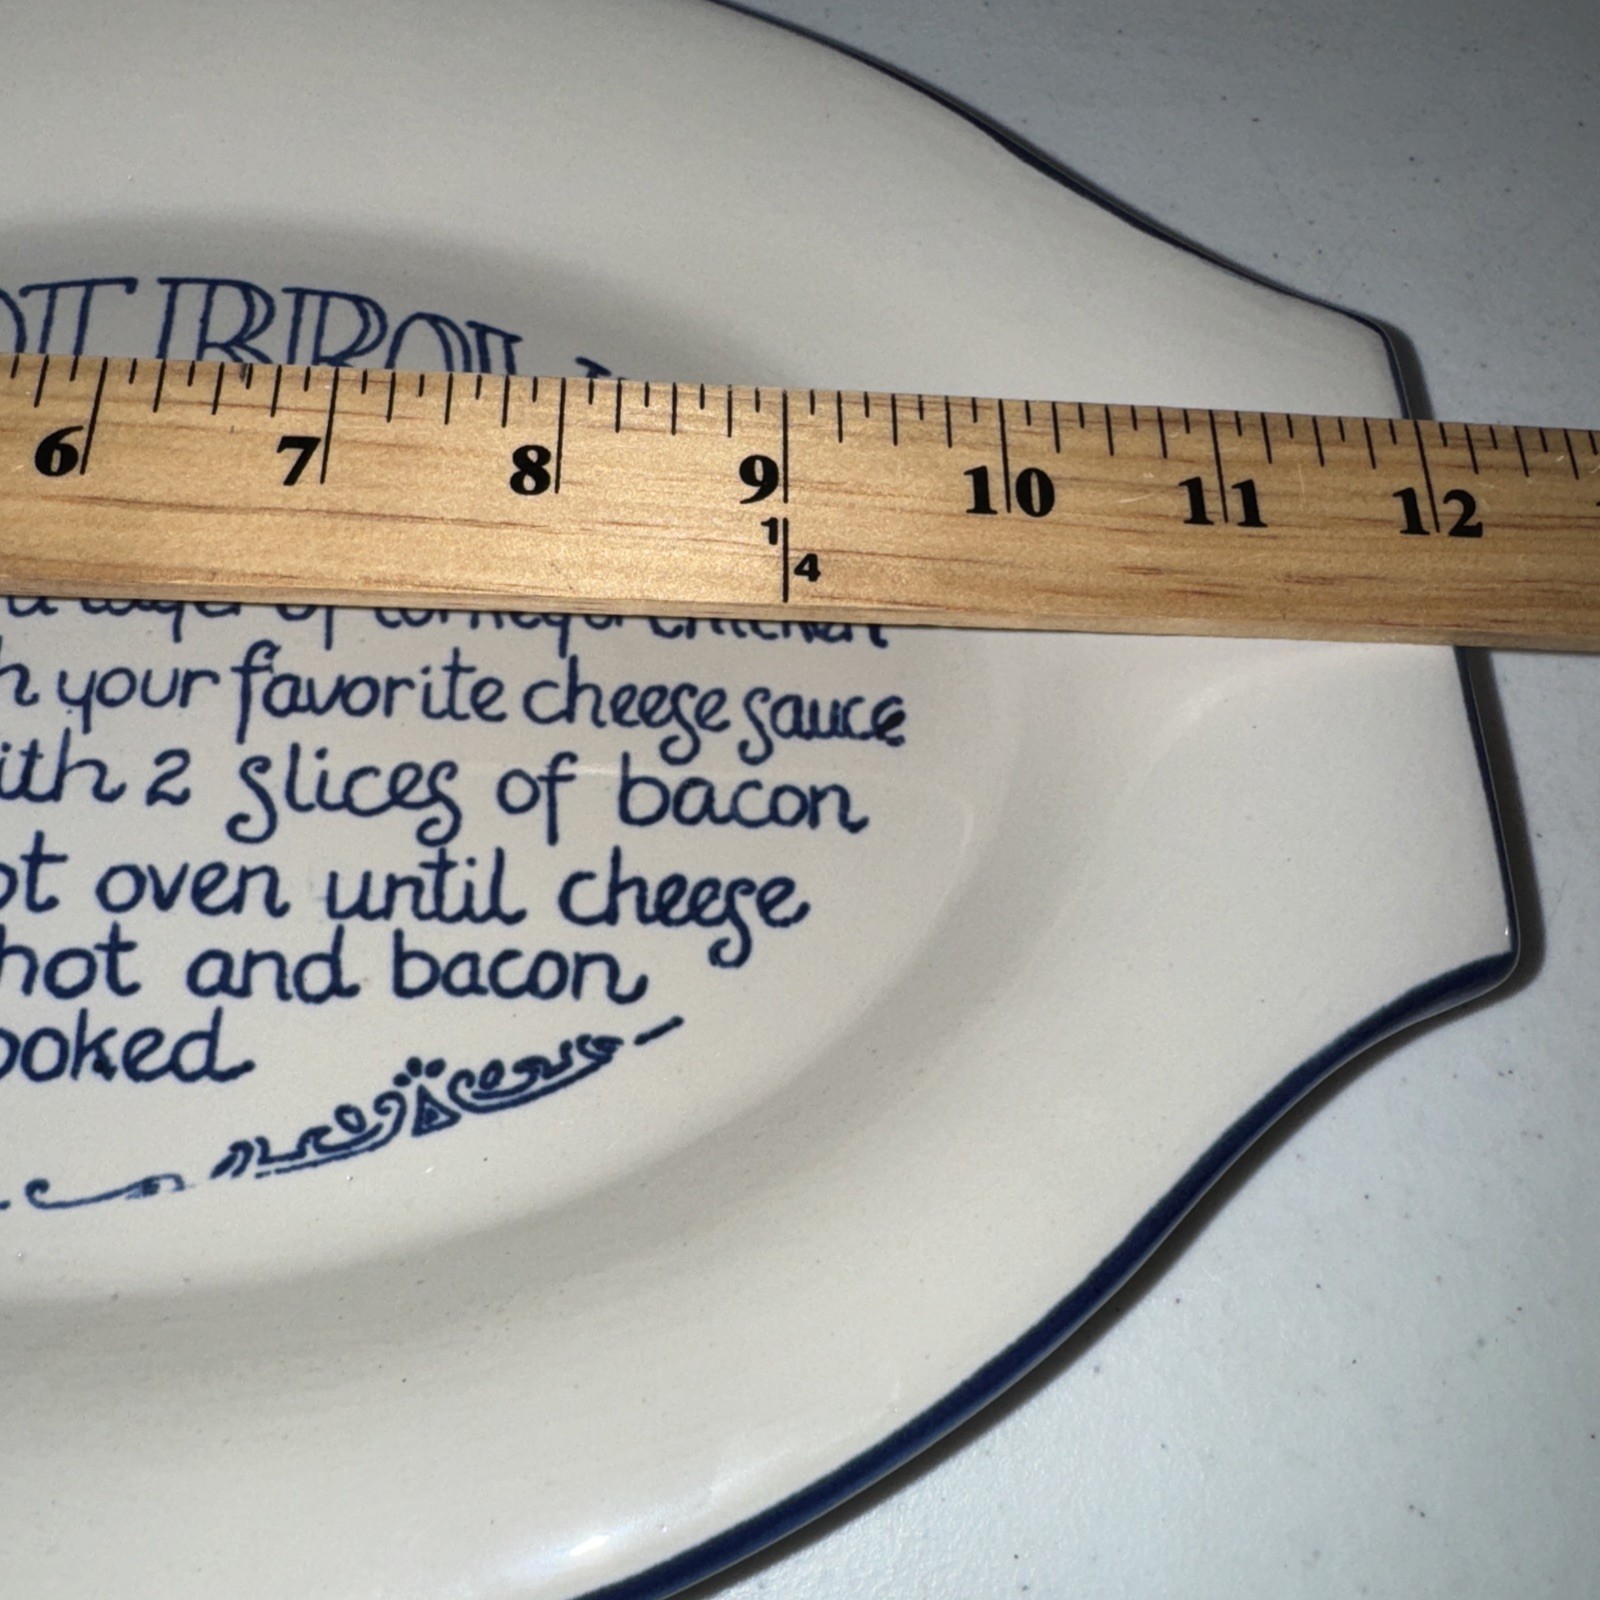 OT BROW
6 7 8 9 10 11 12
1
4
a layer of turkey or chicken
h your favorite cheese sauce
ith 2 slices of bacon
ot oven until cheese
hot and bacon
ooked.